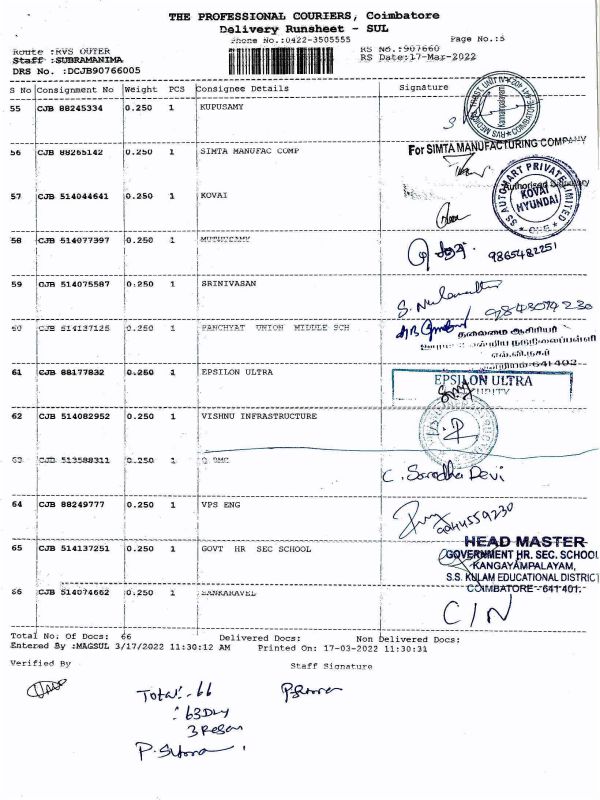 THE PROFESSIONAL COURIERS, Coimbatore
Delivery Runsheet - SUL
Phone No.:0422-3505555 Page No.:5
Route :RVS OUTER RS No.:907660
Staff :SUBRAMANIMA RS Date:17-Mar-2022
DRS No. :DCJCB90766005
S No Consignment No Weight PCS Consignee Details Signature
55 CJB 88245334 0.250 1 KUPUSAMY
56 CJB 88265142 0.250 1 SIMTA MANUFAC COMP
For SIMTA MANUFACTURING COMPANY
Authorised Signatory
57 CJB 514044641 0.250 1 KOVAI
SS AUTOMART PRIVATE LIMITED
KOVAI
HYUNDAI
58 CJB 514077397 0.250 1 MUTHUSAMY
9865482251
59 CJB 514075587 0.250 1 SRINIVASAN
60 CJB 514137125 0.250 1 PANCHYAT UNION MIDDLE SCH
தலைமை ஆசிரியர்
641 402
61 CJB 88177832 0.250 1 EPSILON ULTRA
EPSILON ULTRA
62 CJB 514082952 0.250 1 VISHNU INFRASTRUCTURE
63 CJB 513588311 0.250 1
C. Saradha Devi
64 CJB 88249777 0.250 1 VPS ENG
65 CJB 514137251 0.250 1 GOVT HR SEC SCHOOL
HEAD MASTER
GOVERNMENT HR. SEC. SCHOOL
KANGAYAMPALAYAM,
S.S. KULAM EDUCATIONAL DISTRICT
COIMBATORE - 641 401.
66 CJB 514074662 0.250 1 SANKARAVEL
Total No. Of Docs: 66 Delivered Docs: Non Delivered Docs:
Entered By :MAGSUL 3/17/2022 11:30:12 AM Printed On: 17-03-2022 11:30:31
Verified By Staff Signature
Total:- 66
: 63 Dly